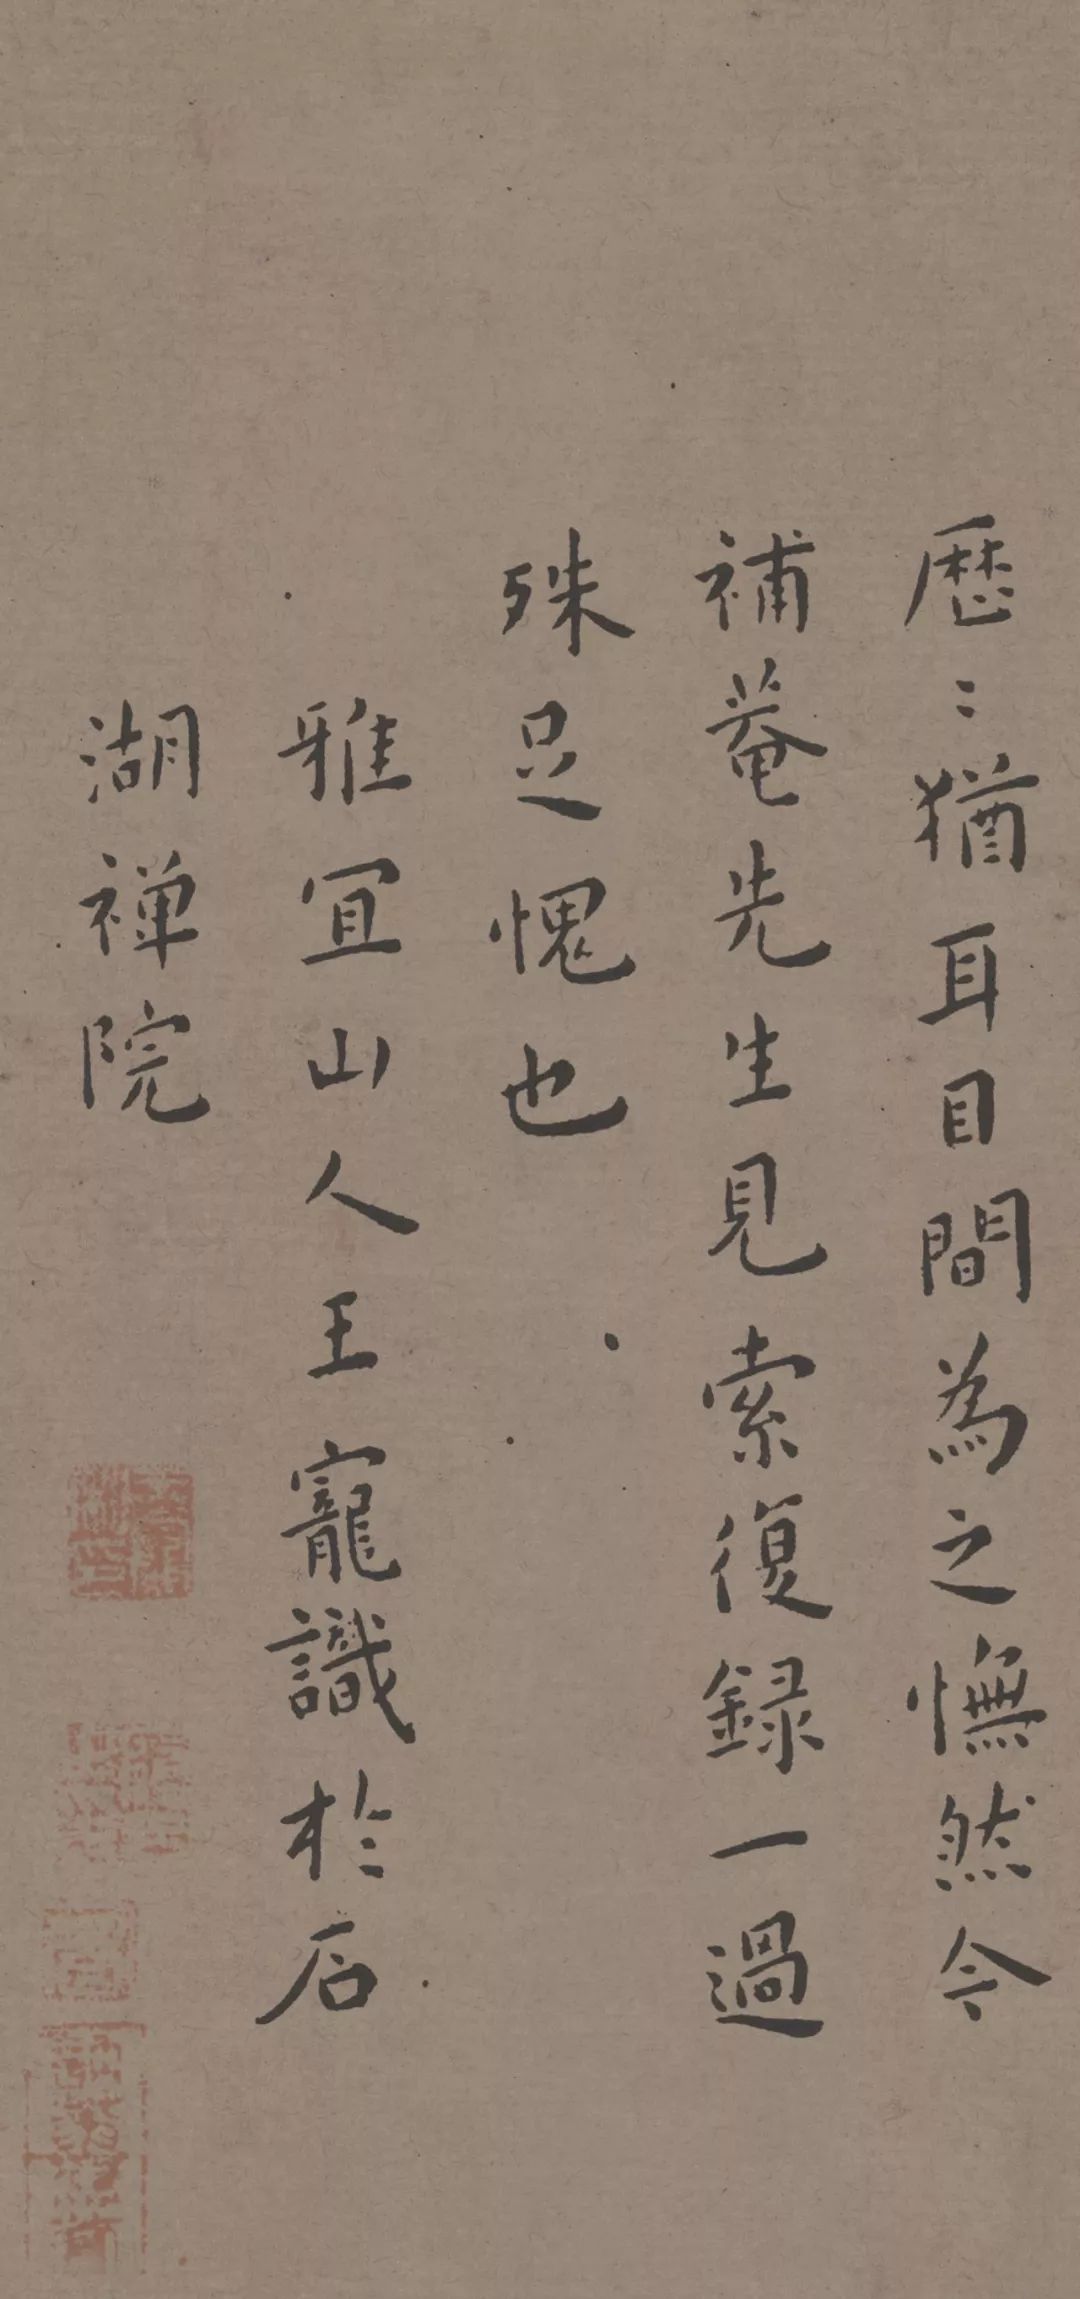 歷〻猶耳目間為之憮然今
補菴先生見索復録一過
殊足愧也
雅宜山人王寵識於石
湖禅院